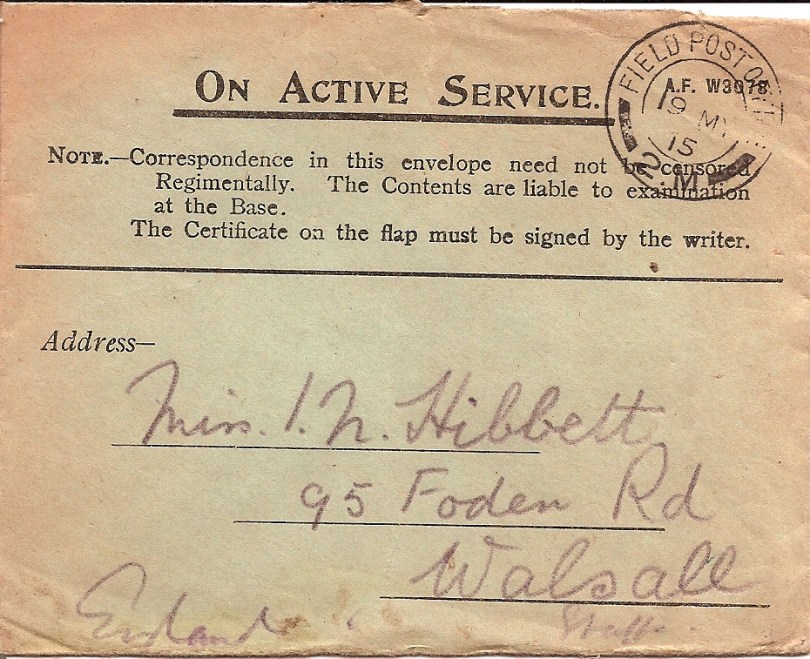 ON ACTIVE SERVICE.
FIELD POST OFFICE
A.F. W3078
9 MY
15
2 M
NOTE.—Correspondence in this envelope need not be censored
Regimentally. The Contents are liable to examination
at the Base.
The Certificate on the flap must be signed by the writer.
Address—
Miss. I. N. Hibbett
95 Foden Rd
Walsall
England Staffs.